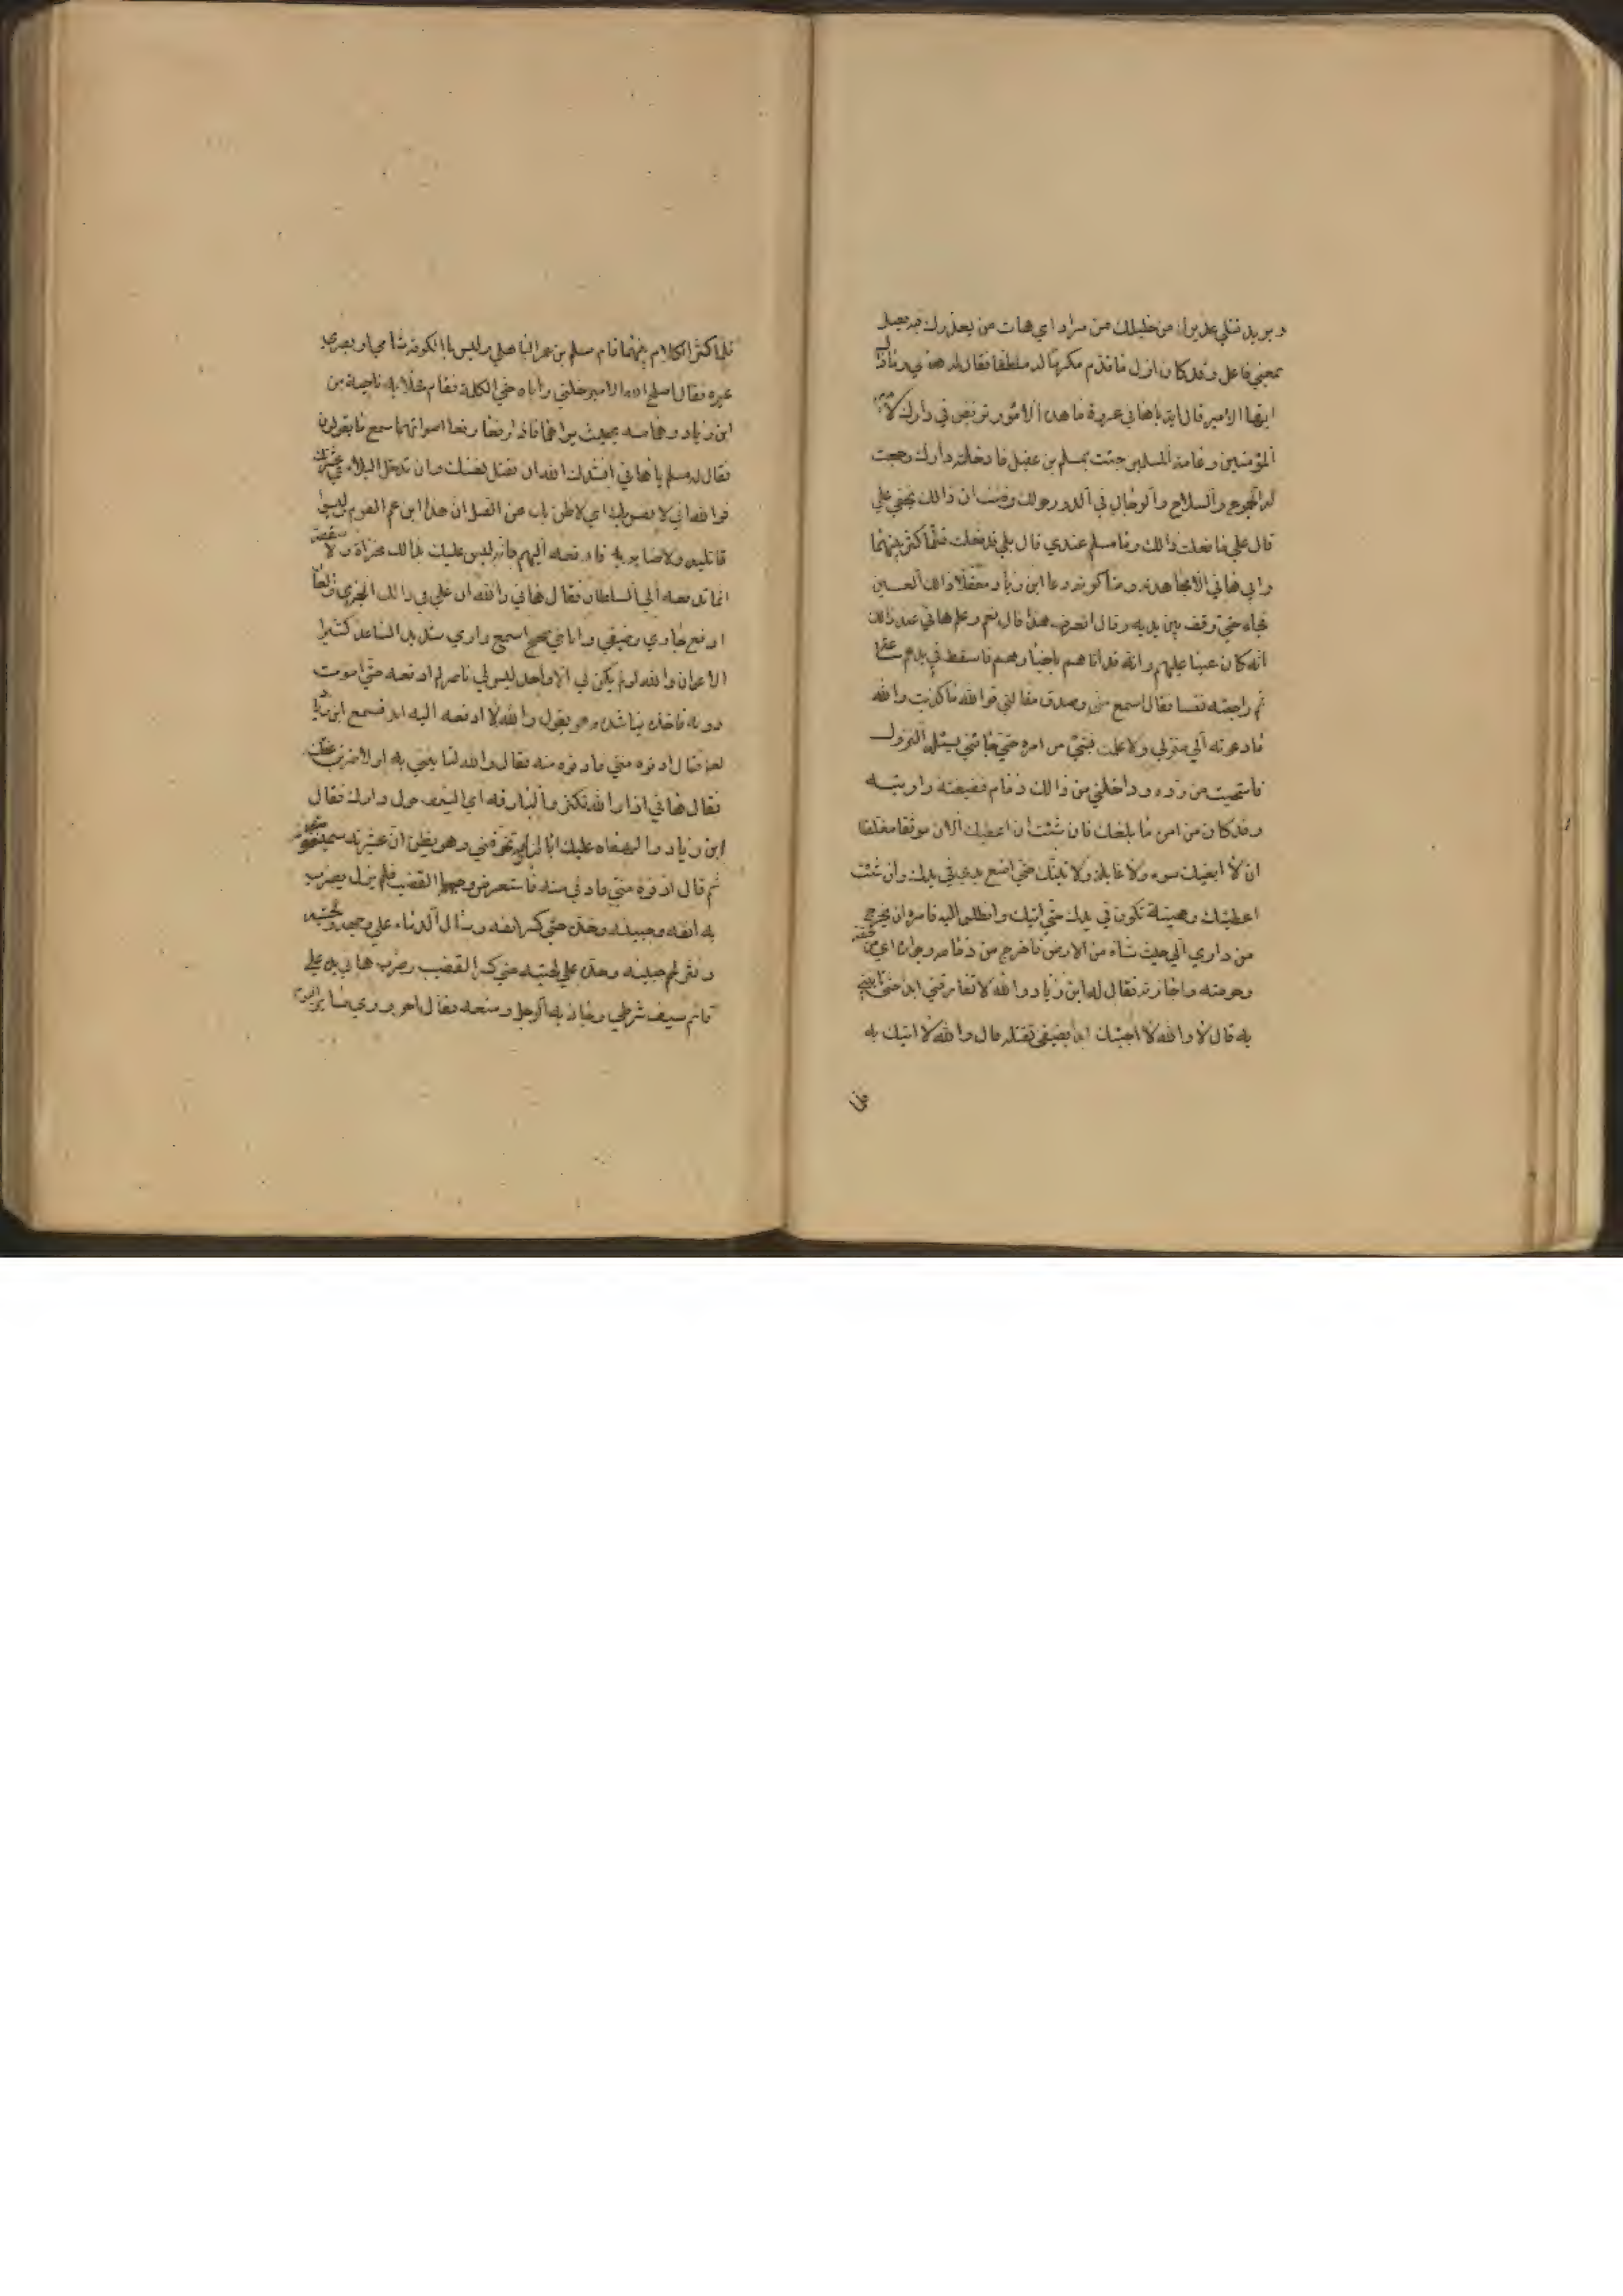 ويريد قتلي عذيرك من خليلك من مراد اي هات من يعذرك فعيل
بمعني فاعل وقد كان اول ما قدم مكرما له ملطفا فقال له هاني وماذا
ايها الامير قال ايه يا هاني عروة ما هذه الامور تربص في دارك لامير
المؤمنين وعامة المسلمين جئت بمسلم بن عقيل فادخلته دارك وجمعت
له الجموع والسلاح والرجال في الدور حولك وظننت ان ذالك يخفي علي
قال علي ما فعلت ذالك وما مسلم عندي قال بلي قد فعلت فلما كثر بينهما
وابي هاني الا مجاهدته ومناكرته دعا ابن زياد معقلا ذالك العين
فجاء حتي وقف بين يديه وقال اتعرف هذا قال نعم وعلم هاني عند ذالك
انه كان عينا عليهم وانه قد اتاهم باخبارهم فاسقط في يدهم
ثم راجعته نفسه فقال اسمع مني وصدق مقالتي فوالله ما كذبت والله
ما دعوته الي منزلي ولا علمت بشئ من امره حتي جائني يسئل النزول
فاستحييت من رده وداخلني من ذالك ذمام فضيفته واويته
وقد كان من امره ما بلغك فان شئت ان اعطيك الان موثقا مغلظا
ان لا ابغيك سوء ولا غايلة ولا تينك حتي اضع يدي في يدك وان شئت
اعطيتك رهينة تكون في يدك حتي اتيك وانطلق اليه فامره ان يخرج
من داري الي حيث شاء من الارض فاخرج من ذمامه وجواره اي من حقه
وحرمته واجازته فقال له ابن زياد والله لا تفارقني ابدا حتي تاتيني
به قال لا والله لا اجيئك ابدا بضيفي تقتله قال والله لا اتيك به
فلما
فلما كثر الكلام بينهما قام مسلم بن عمر الباهلي وليس بالكوفة شامي ولا بصري
غيره فقال اصلح الله الامير خلني واياه حتي اكلمه فقام فخلا به ناحية من
ابن زياد وهما منه بحيث يراهما فاذا رفعا اصواتهما سمع ما يقولون
فقال له مسلم يا هاني انشدك الله ان تقتل نفسك وان تدخل البلاء في عشيرتك
فوالله اني لا نفس بك اي لاظن بك عن القتل ان هذا ابن عم القوم ليسوا
قاتليه ولا ضايريه فادفعه اليهم فانه ليس عليك بذالك مخزاة ولا منقصة
انما تدفعه الي السلطان فقال هاني والله ان علي في ذالك الخزي والعار
ادفع جاري وضيفي وانا حي صحيح اسمع واري شديد الساعد كثير
الاعوان والله لو لم يكن لي الا واحد ليس لي ناصر لم ادفعه حتي اموت
دونه فاخذ يناشده وهو يقول والله لا ادفعه اليه ابدا فسمع ابن زياد
لعنه فقال ادنوه مني فادنوه منه فقال والله لتاتيني به او لاضربن عنقك
فقال هاني اذا والله تكثر البارقه اي السيوف حول دارك فقال
ابن زياد والهفاه عليك ابالبارقة تخوفني وهو يظن ان عشيرته سيمنعونه
ثم قال ادنوه مني فادني منه فاستعرض وجهه بالقضيب فلم يزل يضرب
به انفه وجبينه وخده حتي كسر انفه وسال الدماء علي وجهه ولحيته
ونثر لحم جبينه وخده علي لحيته حتي كسر القضيب وضرب هاني يده علي
قائم سيف شرطي وجاذبه الرجل ومنعه فقال احروري ساير اليوم